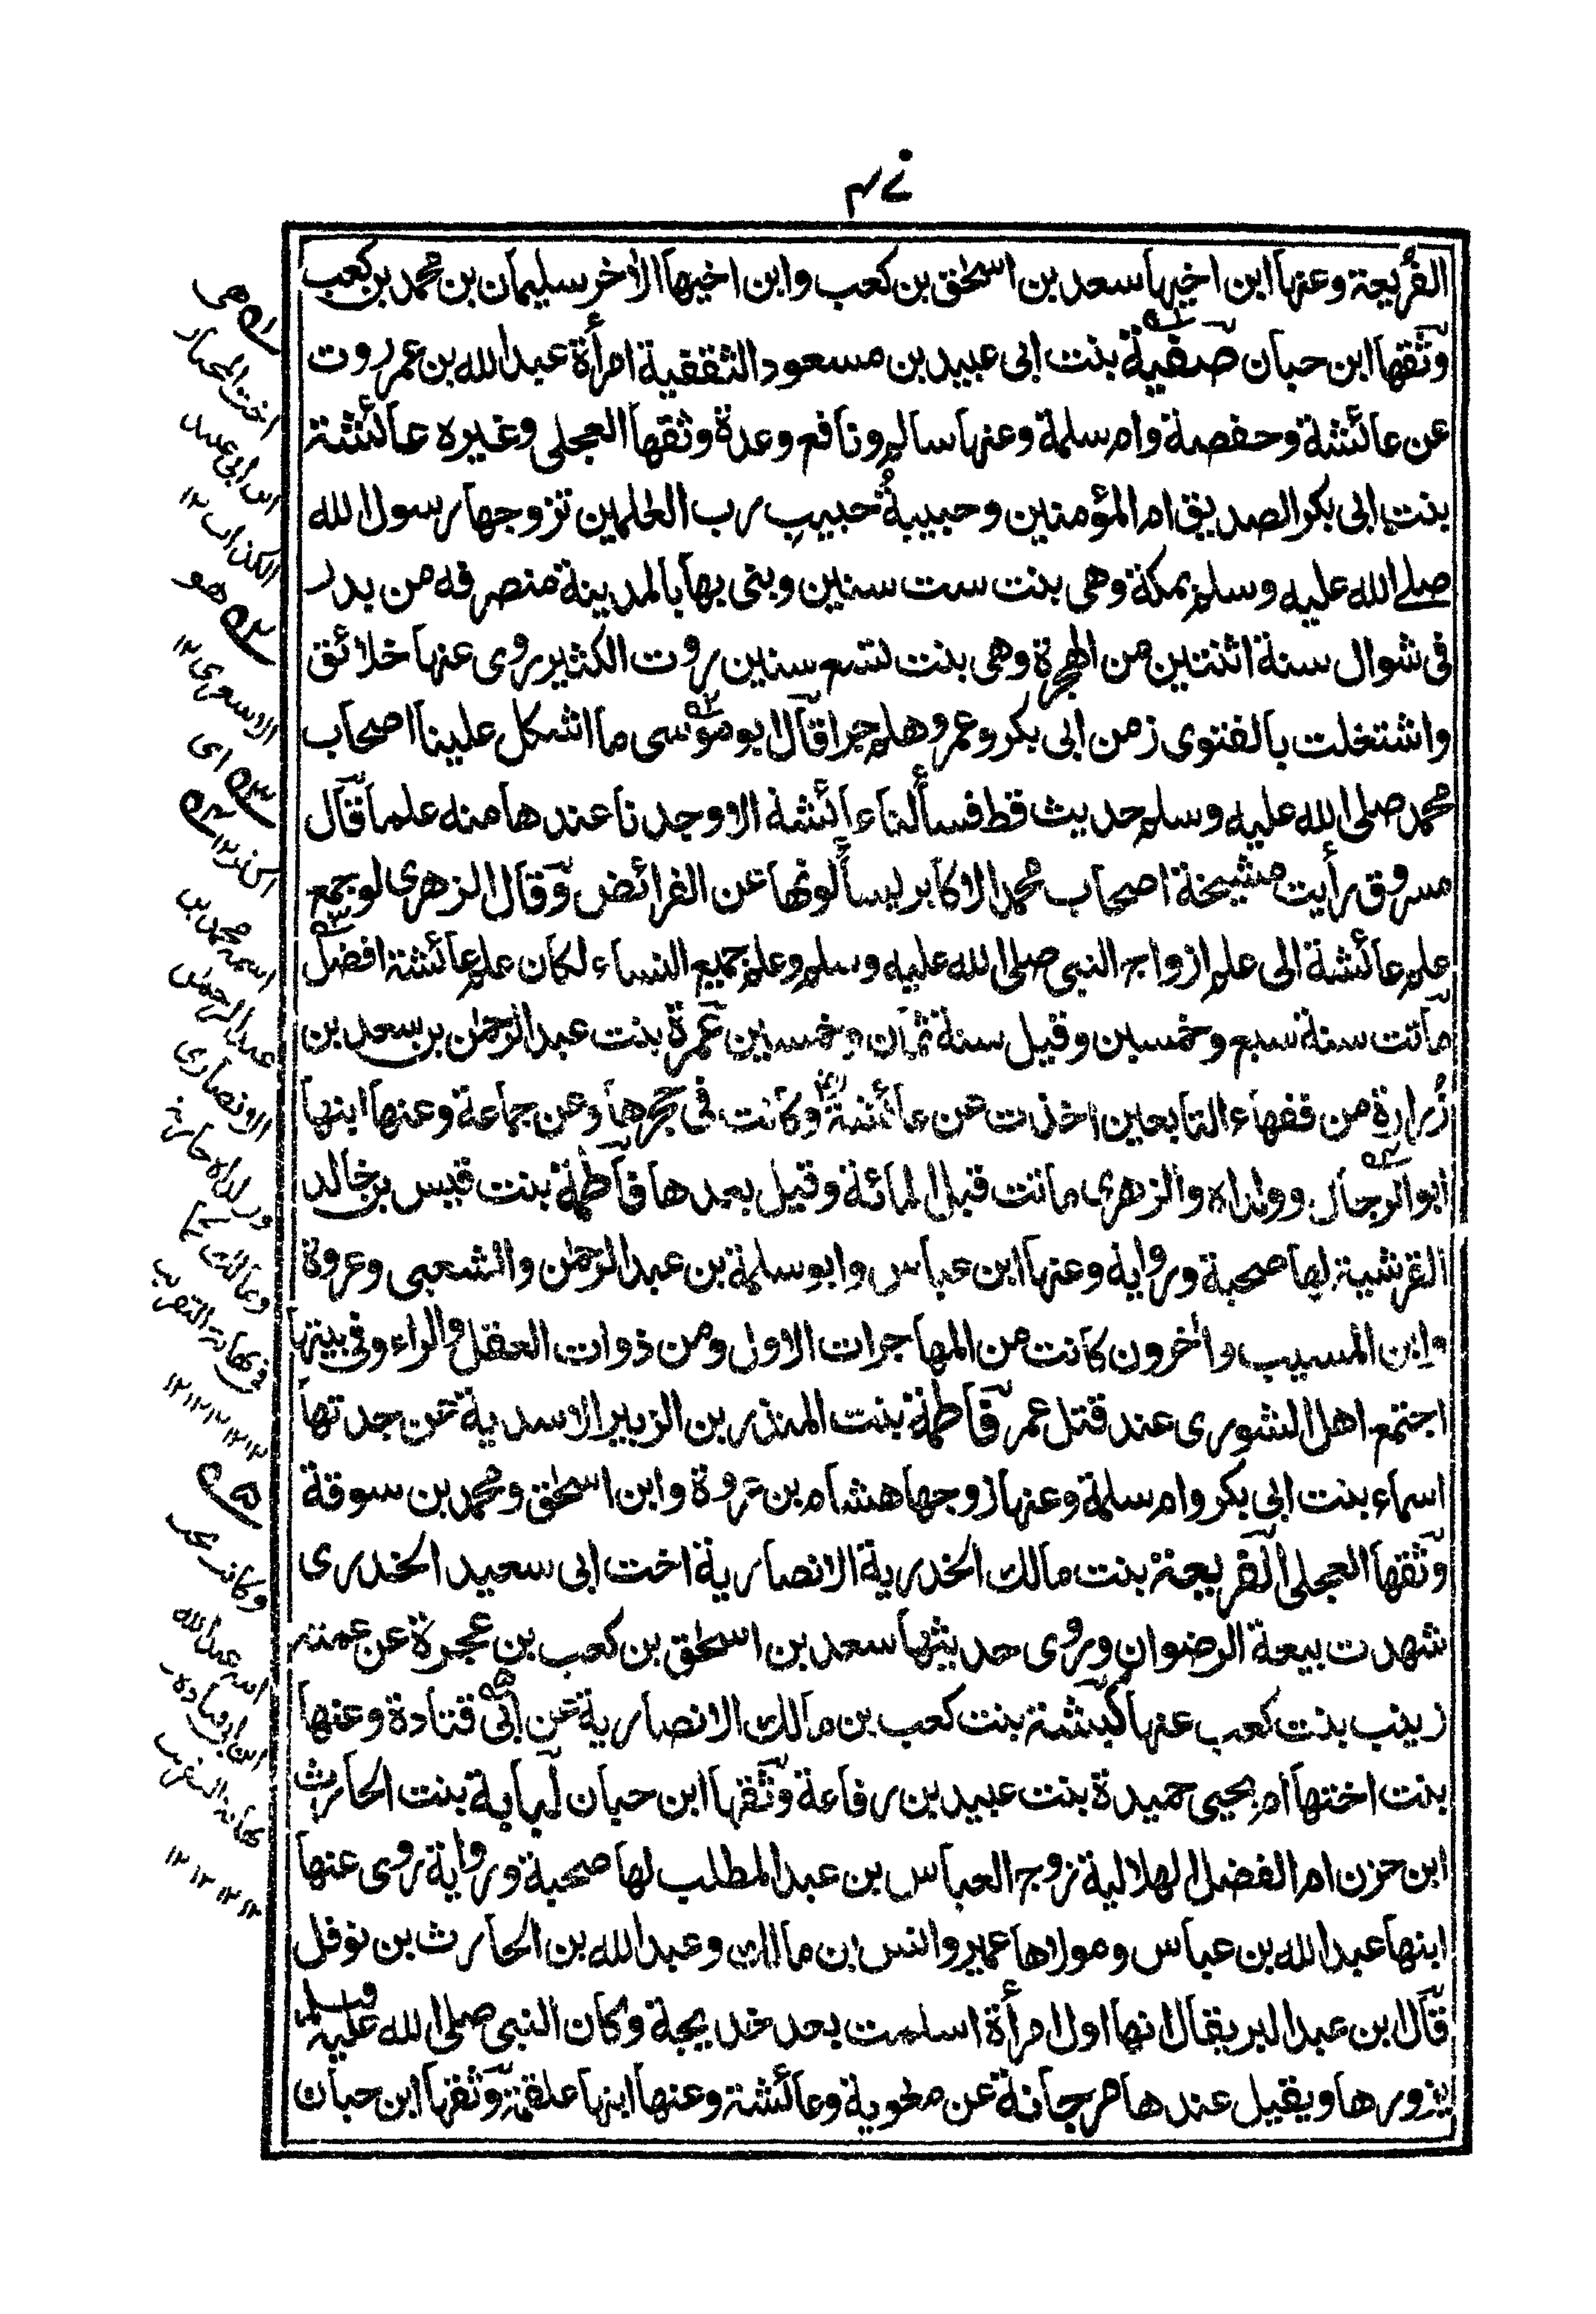 الفريعة وعنها ابن اخيها سعد بن اسحٰق بن كعب وابن اخيها الاخر سليمان بن محمد بن كعب
وثقها ابن حبان صفية بنت ابى عبيد بن مسعود الثقفية امرأة عبد الله بن عمر روت
عن عائشة وحفصة وام سلمة وعنها سالم ونافع وعدة وثقها العجلى وغيره عائشة
بنت ابى بكر الصديق ام المؤمنين وحبيبةُ حبيبِ رب العٰلمين تزوجها رسول الله
صلے الله عليه وسلم بمكة وهى بنت ست سنين وبنى بها بالمدينة منصرفه من بدر
فى شوال سنة اثنتين من الهجرة وهى بنت تسع سنين روت الكثير روى عنها خلائق
واشتغلت بالفتوى زمن ابى بكر وعمر وهلم جرا قال ابو موسى ما اشكل علينا اصحاب
محمد صلى الله عليه وسلم حديث قط فسألنا عائشة الا وجدنا عندها منه علما قال
مسروق رأيت مشيخة اصحاب محمد الاكابر ليسألونها عن الفرائض وقال الزهرى لو جمع
علم عائشة الى علم ازواج النبى صلى الله عليه وسلم وعلم جميع النساء لكان علم عائشة افضل
ماتت سنة سبع وخمسين وقيل سنة ثمان وخمسين عمرة بنت عبد الرحمٰن بن سعد بن
زُرارةِ من فقهاء التابعين اخذت عن عائشة وكانت فى حجرها وعن جماعة وعنها ابنها
ابو الرجال وولداه والزهرى ماتت قبل المائة وقيل بعدها فاطمة بنت قيس بن خالد
القرشية لها صحبة ورواية وعنها ابن عباس وابو سلمة بن عبد الرحمٰن والشعبى وعروة
وابن المسيب واٰخرون كانت من المهاجرات الاول ومن ذوات العقل والراء وفى بيتها
اجتمع اهل الشورى عند قتل عمر فاطمة بنت المنذر بن الزبير الاسدية عن جدتها
اسماء بنت ابى بكر وام سلمة وعنها زوجها هشام بن عروة وابن اسحٰق ومحمد بن سوقة
وثقها العجلى الفريعة بنت مالك الخدرية الانصارية اخت ابى سعيد الخدرى
شهدت بيعة الرضوان وروى حديثها سعد بن اسحٰق بن كعب بن عجرة عن عمته
زينب بنت كعب عنها كبشة بنت كعب بن مالك الانصارية عن ابى قتادة وعنها
بنت اختها ام يحيى حميدة بنت عبيد بن رفاعة وثقها ابن حبان لبابة بنت الحارث
ابن حزن ام الفضل الهلالية زوج العباس بن عبد المطلب لها صحبة ورواية روى عنها
ابنها عبد الله بن عباس ومولاها عمير وانس بن مالك وعبد الله بن الحارث بن نوفل
قال ابن عبد البر يقال انها اول امرأة اسلمت بعد خديجة وكان النبى صلى الله عليه وسلم
يزورها ويقيل عندها مرجانة عن معٰوية وعائشة وعنها ابنها علقمة وثقها ابن حبان
لـه هى
اخت المختار
ابن ابى عبيد
الكذاب ١٢
٢ـه هو
الاشعرى ١٢
٣ـه اى
٤ـه
اسمه محمد بن
عبد الرحمٰن
الانصارى
وولداه حارثة
ومالك
فى
١٢ ١٢ ١٢ ١٢
٥ـه
وكانت تحت
عبد الله
ابن ابى قتادة
١٢ ١٢ ١٢ ١٢